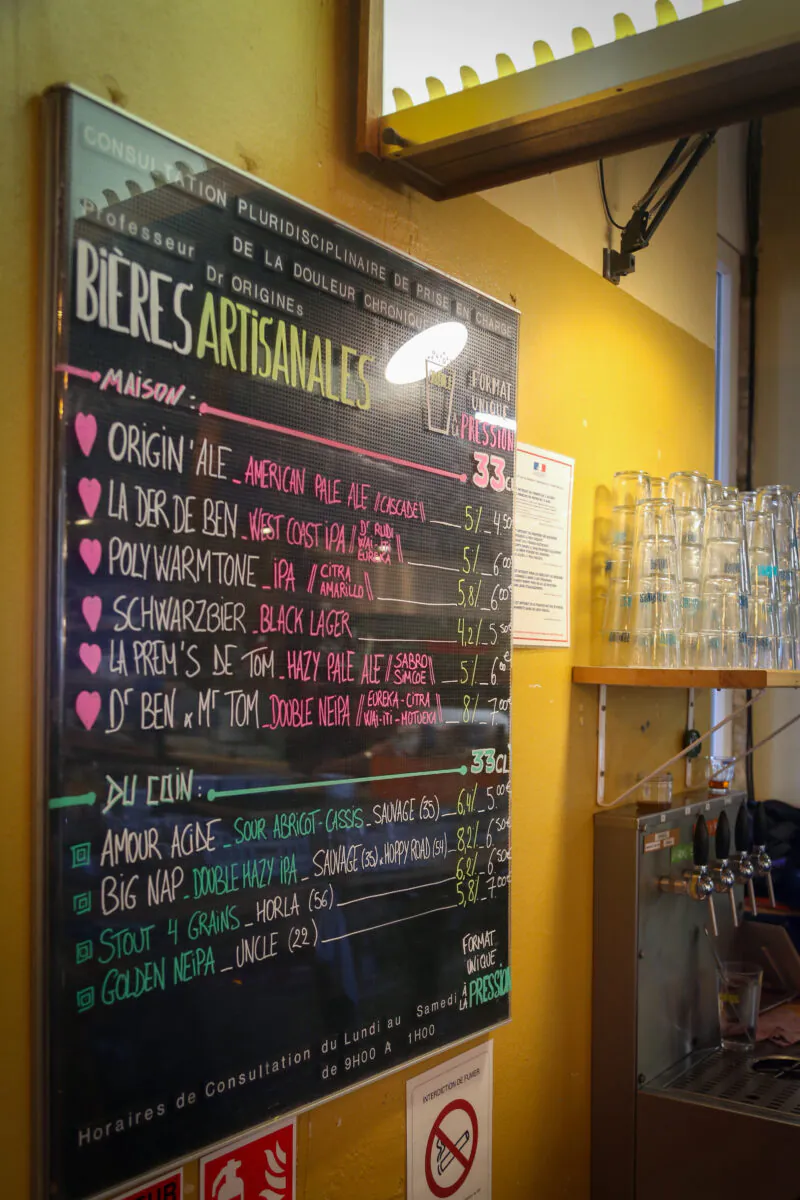 CONSULTATION PLURIDISCIPLINAIRE DE PRISE EN CHARGE
DE LA DOULEUR CHRONIQUE
Professeur Dr ORIGINEs
BIÈRES ARTISANALES
FORMAT
UNIQUE
PRESSION
MAISON :
33CL
ORIGIN'ALE _ AMERICAN PALE ALE //CASCADE\\ 5% _ 4,50
LA DER DE BEN _ WEST COAST IPA // Dr RUDI WAI-ITI EUREKA \\ 5% _ 6,00
POLYWARMTONE _ IPA // CITRA AMARILLO \\ 5,8% _ 6,00
SCHWARZBIER _ BLACK LAGER 4,2% _ 5,50
LA PREM'S DE TOM _ HAZY PALE ALE // SABRO SIMCOE \\ 5% _ 6,00
Dr BEN x Mr TOM _ DOUBLE NEIPA // EUREKA-CITRA WAI-ITI-MOTUEKA \\ 8% _ 7,00
DU COIN : 33CL
AMOUR ACIDE _ SOUR ABRICOT-CASSIS _ SAUVAGE (35) 6,4% _ 5,00€
BIG NAP _ DOUBLE HAZY IPA _ SAUVAGE (35) x HOPPY ROAD (54) 8,2% _ 6,50€
STOUT 4 GRAINS _ HORLA (56) 6,2% _ 6,50€
GOLDEN NEIPA _ UNCLE (22) 5,8% _ 7,00€
FORMAT
UNIQUE
À LA PRESSION
Horaires de Consultation du Lundi au Samedi
de 9H00 A 1H00
INTERDICTION DE FUMER